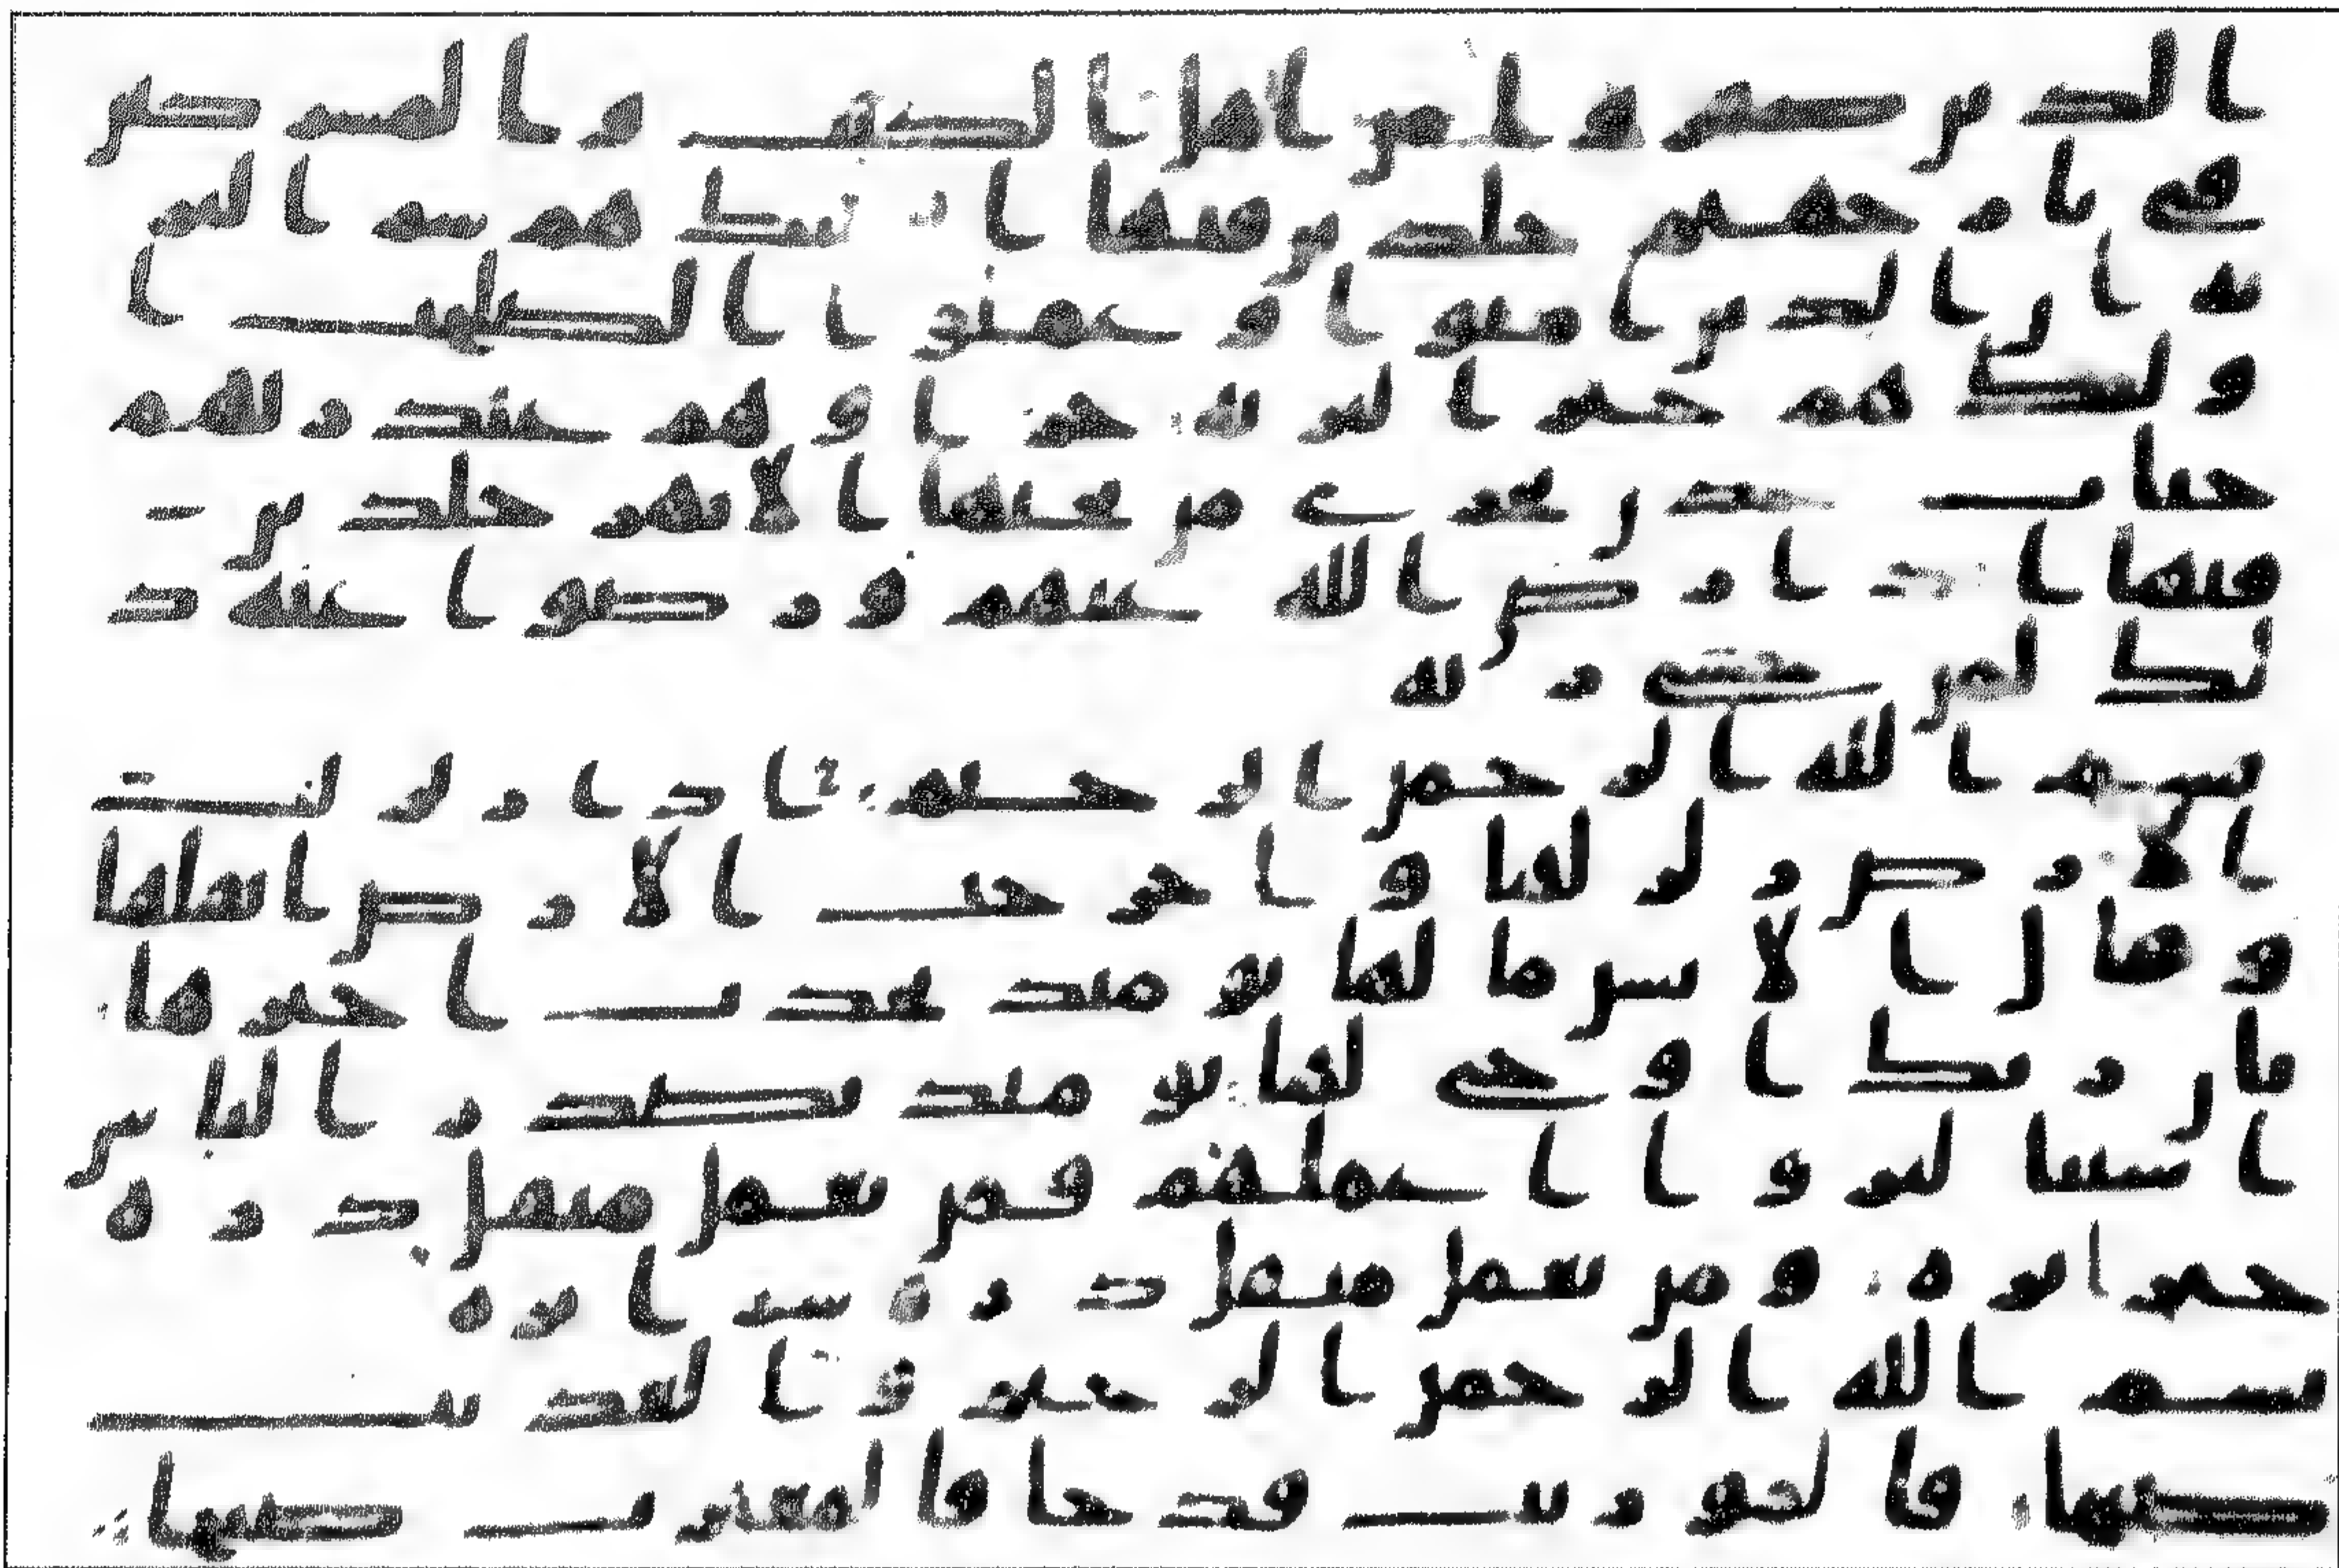 الذين كفروا من اهل الكتب والمشركين
في نار جهنم خلدين فيها اولئك هم شر البر
ية ان الذين امنوا وعملوا الصلحت ا
ولئك هم خير البرية جزاؤهم عند ربهم
جنات عدن تجري من تحتها الانهر خلدين
فيها ابدا رضي الله عنهم ورضوا عنه ذ
لك لمن خشي ربه
بسم الله الرحمن الرحيم اذا زلزلت
الارض زلزلها واخرجت الارض اثقلها
وقال الانسن ما لها يومئذ تحدث اخبرها
بان ربك اوحى لها يومئذ يصدر الناس
اشتتا ليروا اعملهم فمن يعمل مثقل ذرة
خيرا يره ومن يعمل مثقل ذرة شرا يره
بسم الله الرحمن الرحيم والعديت
ضبحا فالموريت قدحا فالمغيرت صبحا